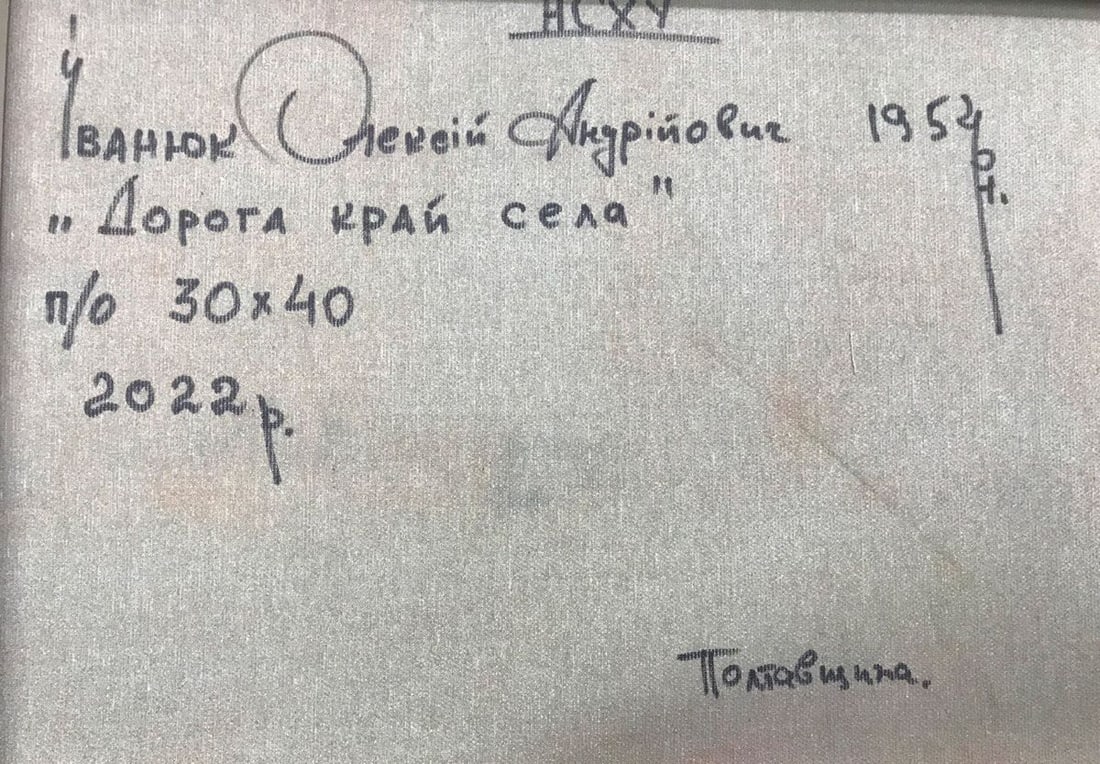 НСХУ
Іванюк Олексій Андрійович 1954 р.н.
"Дорога край села"
п/о 30х40
2022р.
Полтавщина.